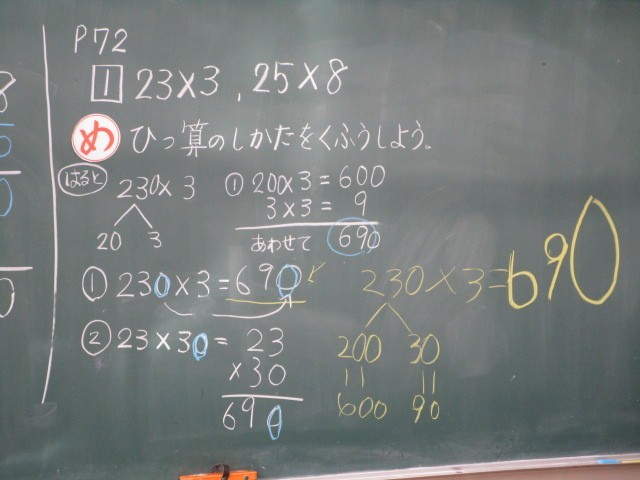 8
0
0
0
P72
1 23×3, 25×8
め ひっ算のしかたをくふうしよう。
はると
230×3
20 3
① 200×3=600
3×3= 9
あわせて 690
① 230×3=690
② 23×30= 23
×30
690
230×3=690
200 30
|| ||
600 90